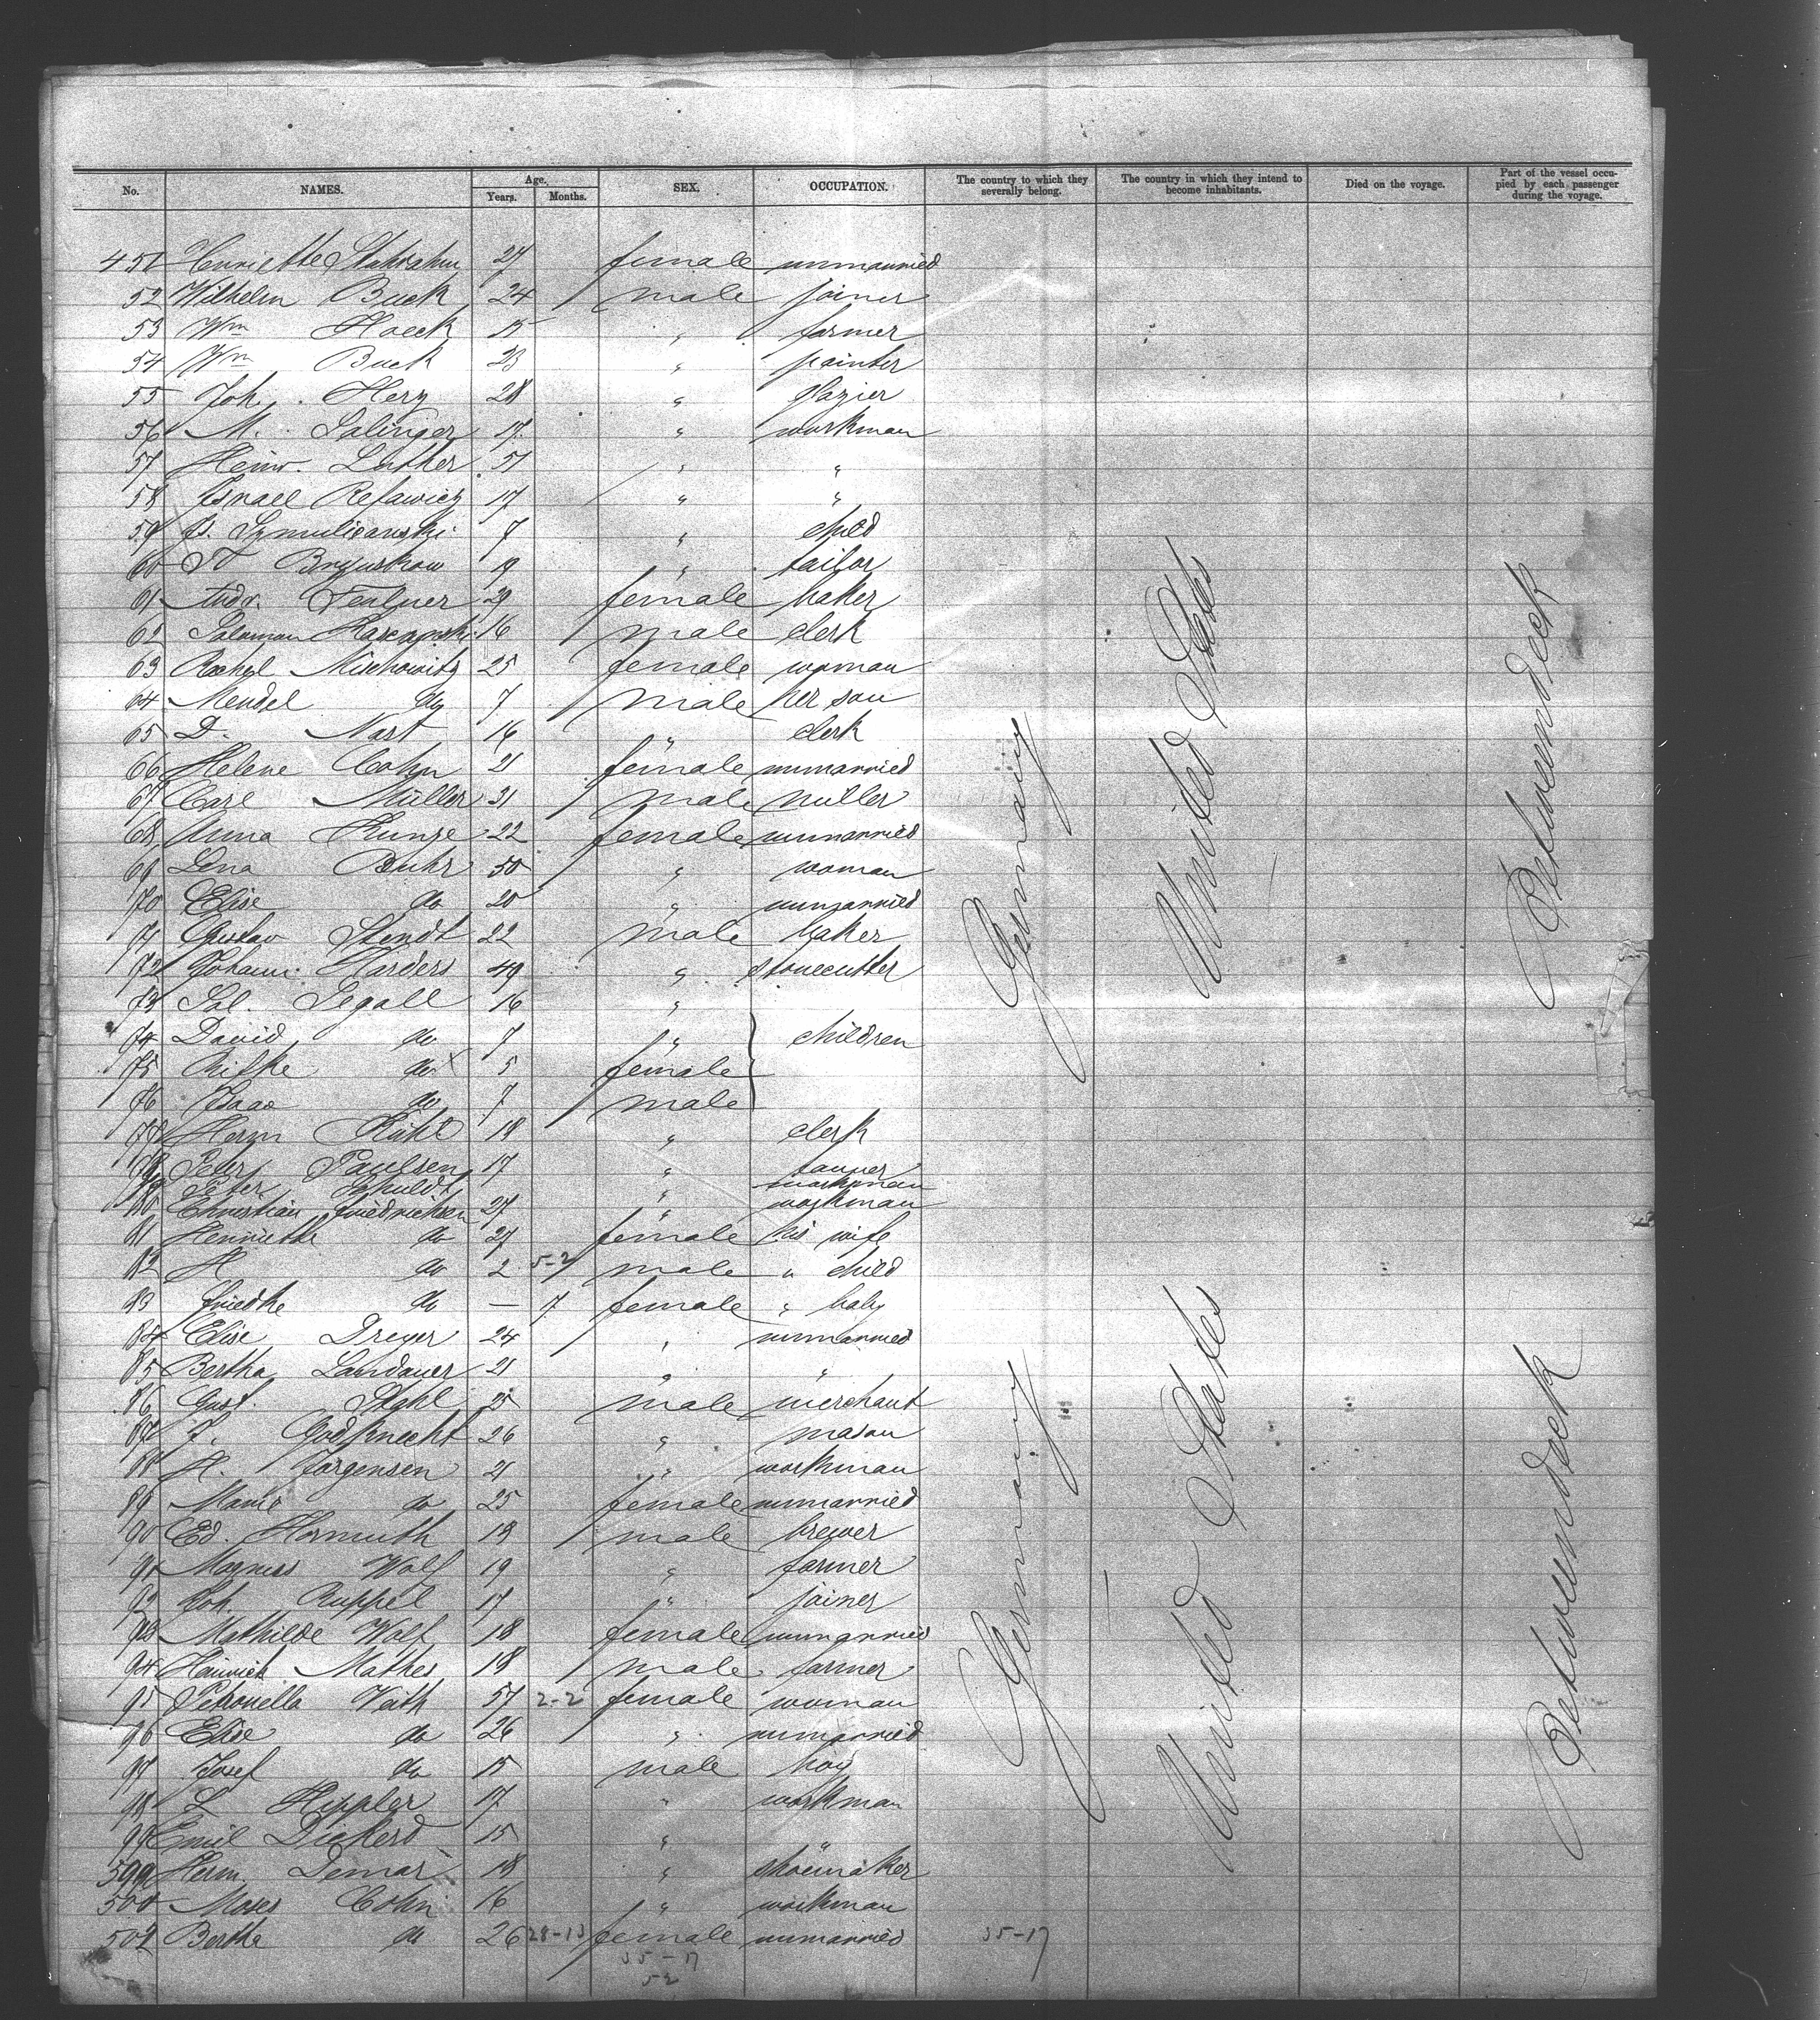 No. NAMES. Age. Years. Months. SEX. OCCUPATION. The country to which they severally belong. The country in which they intend to become inhabitants. Died on the voyage. Part of the vessel occupied by each passenger during the voyage.
451 Henriette 27 female unmarried
52 Wilhelm Buck 24 male joiner
53 Wm Hoeck 15 " farmer
54 Wm Buck 23 " painter
55 Joh. Herz 28 " glazier
56 M. Salinger 17 " workman
57 Heinr. Luther 51 " "
58 Israel Refawicz 17 " "
59 Js. 7 " child
60 19 " tailor
61 Andr. 29 female baker
62 Salomon 16 male clerk
63 Rochel Mischowitz 25 female woman
64 Mendel do 7 male her son
65 D. Nast 16 " clerk
66 Helene Cohn 21 female unmarried
67 Carl Müller 31 male miller
68 Anna Kunze 22 female unmarried
69 Lena Buhr 50 " woman
70 Elise do 20 " unmarried
71 Gustav Stendt 22 male baker
72 Johann Harders 49 " stonecutter
73 Sal. Segall 16 "
74 David do 7 " children
75 Rifke do x 5 female
76 Isaac do 7 male
77 Herm Kühl 18 " clerk
78 Peter Paulsen 17 " tanner
79 Peter Schuldt " workman
80 Christian Friedrichsen 27 " workman
81 Henriette do 27 female his wife
82 H do 2 5-2 male " child
83 Friedke do — 7 female " baby
84 Elise Dreyer 24 " unmarried
85 Bertha Landauer 21 " "
86 Gust. Stahl 25 male merchant
87 J. Godknecht 26 " mason
88 H. Jörgensen 21 " workman
89 Marie do 25 female unmarried
90 Ed. Hormuth 19 male brewer
91 Magnus Wolf 19 " farmer
92 Joh. Ruppel 17 " joiner
93 Mathilde Wolf 18 female unmarried
94 Heinrich Mathes 18 male farmer
95 Petronella Veith 57 2-2 female woman
96 Elise do 26 " unmarried
97 Josef do 15 male boy
98 L Hippler 17 " workman
99 Emil Dickerd 15 " "
500 Herm. Demar 18 " shoemaker
501 Moses Cohn 16 " workman
502 Bertha do 26 28-13 female unmarried 35-17
35-17
52
Germany
United States
Betweendeck
Germany
United States
Betweendeck